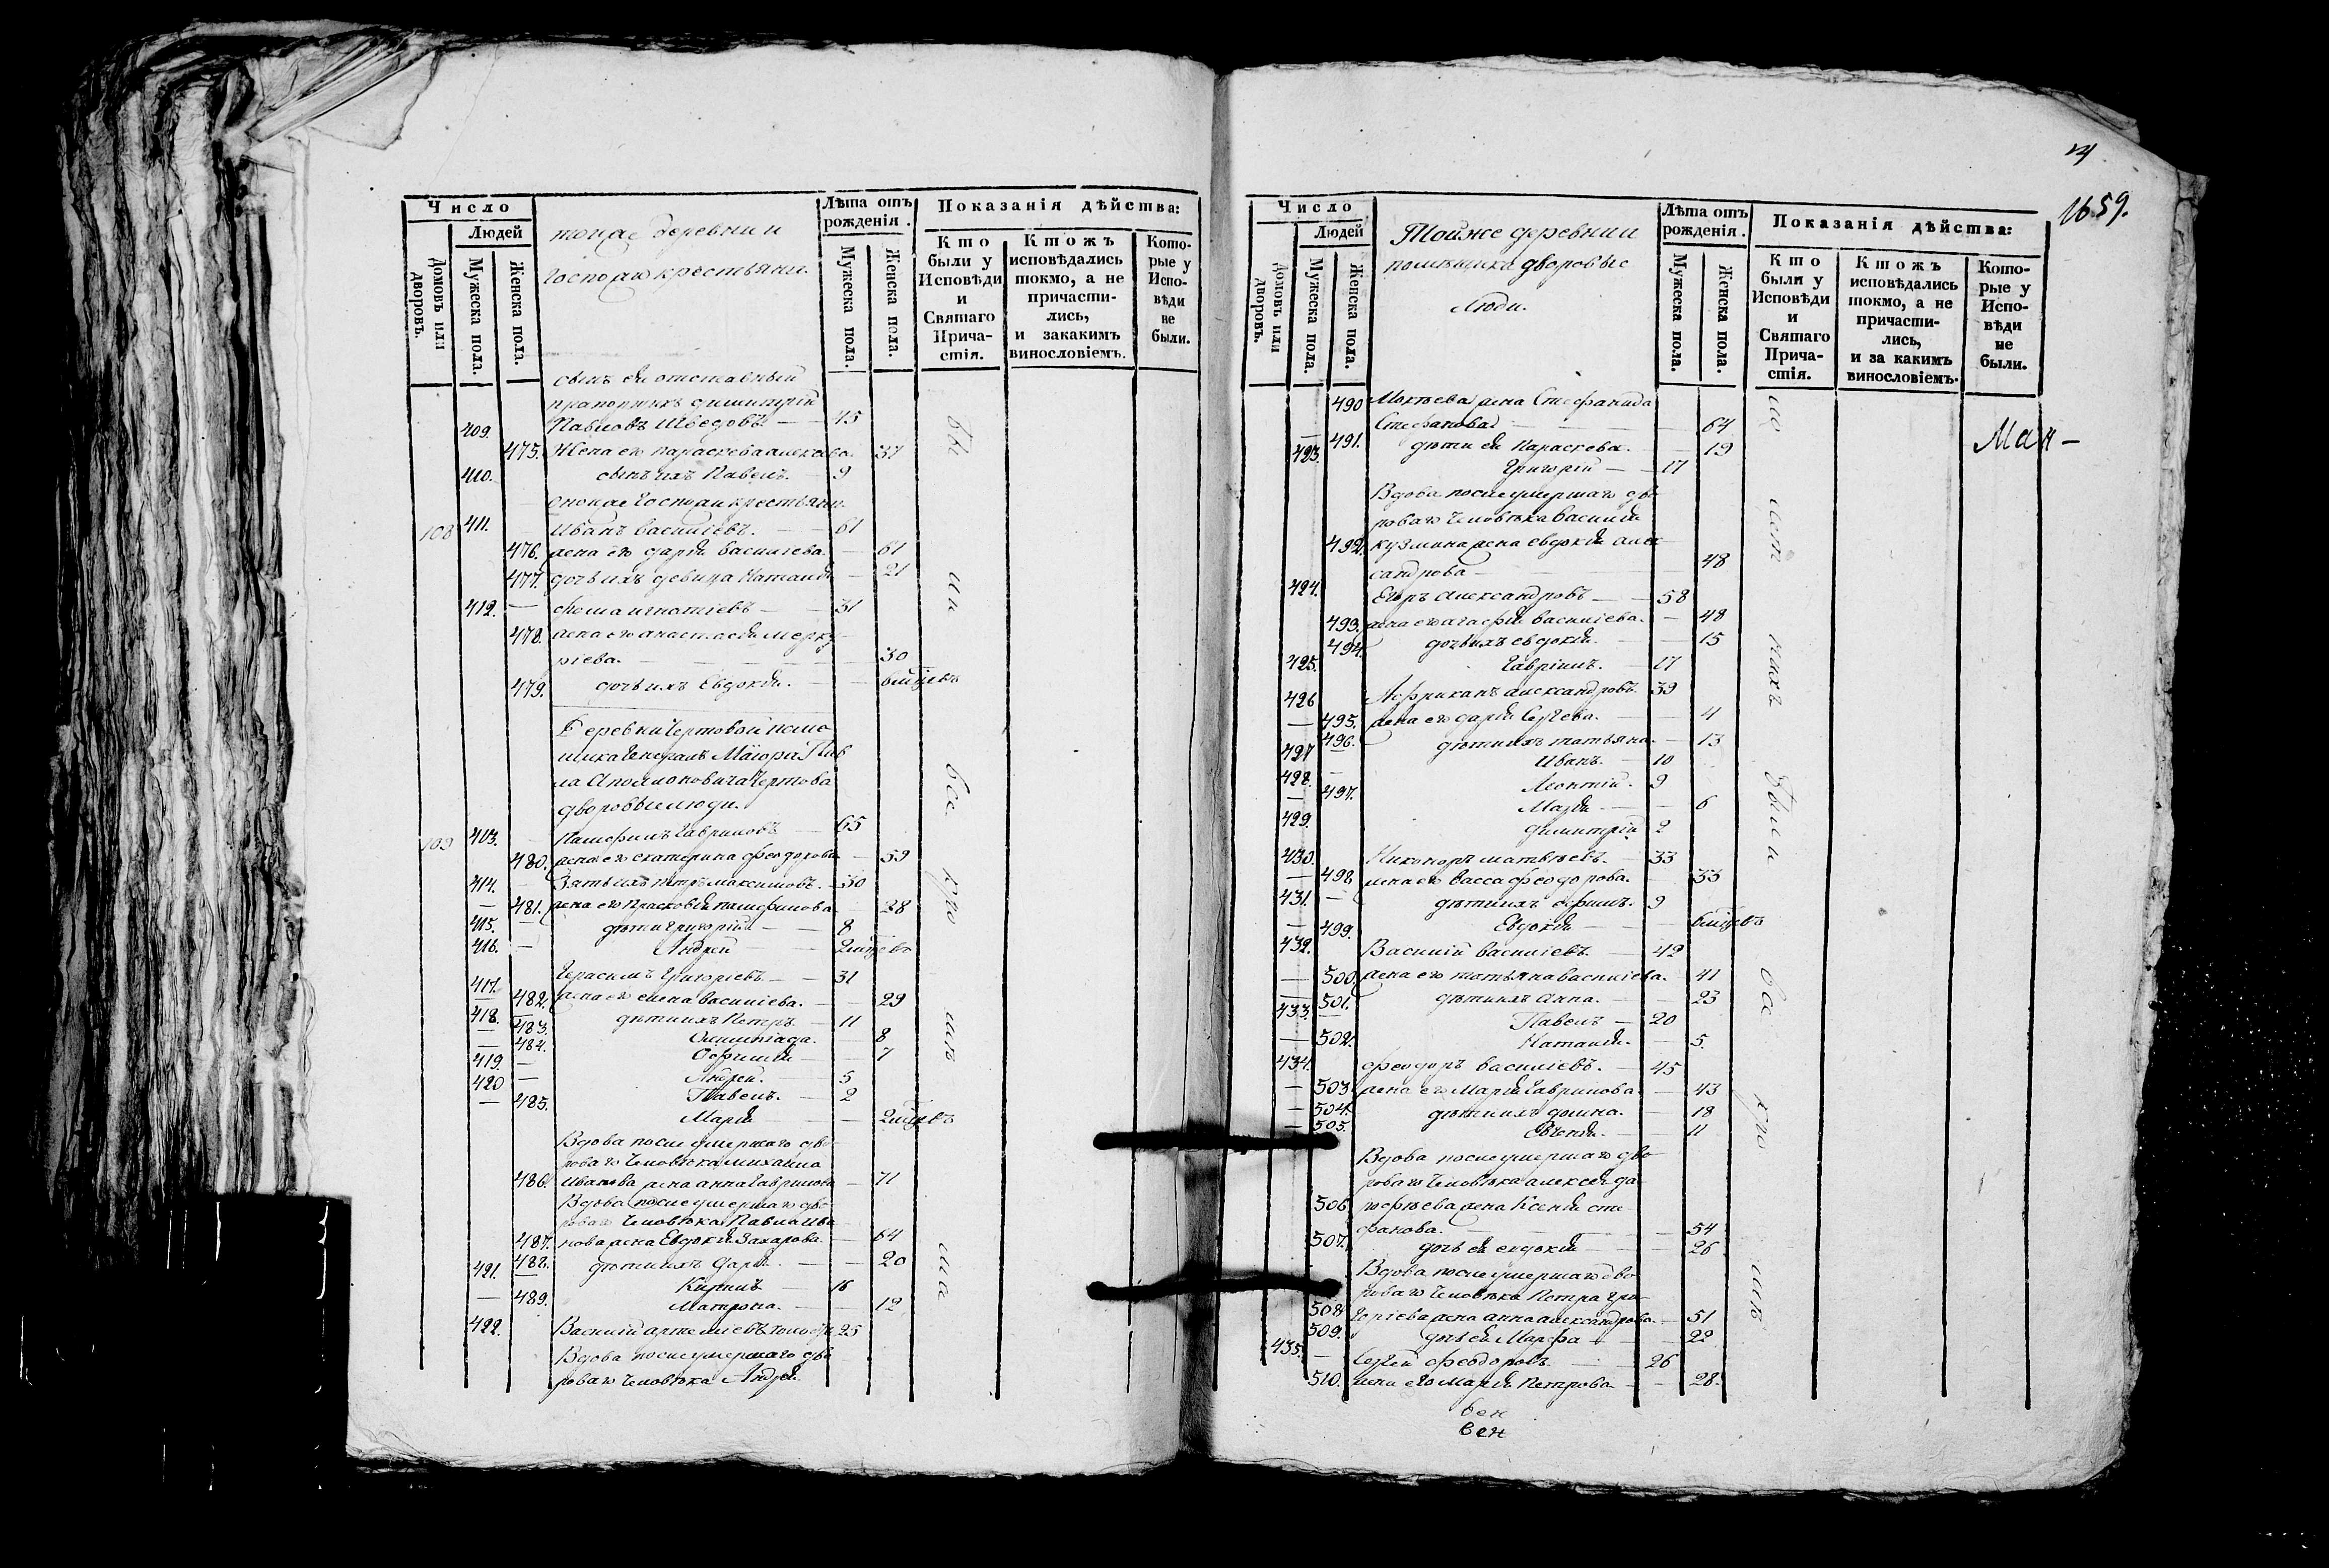 Число
Людей
Домовъ или дворовъ.
Мужеска пола.
Женска пола.
тоиже деревни и
Господаю крестьяни.
Лѣта отъ рожденія.
Мужеска пола.
Женска пола.
Показанія дѣйства:
Кто были у Исповѣди и Святаго Прича- стія.
Ктожъ исповѣдались токмо, а не причасти- лись, и закакимъ винословіемъ.
Кото- рые у Испо- вѣди не были.
сынъ ея отставный
прапорщикъ димитрій
409. Павловъ — — 45
475. Жена его параскева 37
410. сынъ ихъ Павелъ. 9
108 411. Иванъ василіевъ. — 61
476. жена его дарія василіева. — 61
477. дочь ихъ девица Наталія — 21
412. — игнатіевъ — — 31
478. жена его анастасія мерку
ріева. — — 30
479. дочь ихъ Евдокія. — —
Деревни Чертовой поме
щика Генералъ Маіора Пав
ла Аполлоновича Чертова
дворовые люди.
109 413. Памфилъ Гавриловъ — 65
480. жена его екатерина феодорова — 59
414. Зять ихъ петръ максимовъ. — 30
— 481. жена его Прасковія памфилова 28
415. — дѣти Григорій — — 8
416. — Андрей
417. Герасимъ Григоріевъ — 31
— 482. жена его елена василіева. — — 29
418. дѣти ихъ Петръ — 11
— 483. Олимпіада. — 8
— 484. Офимія — — 7
419. — Андрей. — 5
420 — Павелъ. — 2
— 485. Марія — —
Вдова после умершаго дво
роваго человѣка михаила
486. Иванова жена анна Гаврилова — 71
Вдова после умершаго дво
роваго человѣка Павла Ива
487. нова жена Евдокія Захарова — 64
488. дѣти ихъ Дарія. — — 20
421. — Карпъ — 16
— 489. Матрона. — 12
422. Василій артеміевъ 25
Вдова после умершаго дво
роваго человѣка Андрея
бы
ли
все
кто
ма
4
1659.
Число
Людей
Домовъ или дворовъ.
Мужеска пола.
Женска пола.
Тойже деревни и
помѣщика дворовые
люди.
Лѣта отъ рожденія.
Мужеска пола.
Женска пола.
Показанія дѣйства:
Кто были у Исповѣди и Святаго Прича- стія.
Ктожъ исповѣдались токмо, а не причасти- лись, и за какимъ винословіемъ.
Кото- рые у Испо- вѣди не были.
490 жена Стефанида
Стефанова — — 64
— 491. дѣти ея Параскева. — 19
423. Григорій — — 17
Вдова после умершаго дво
роваго человѣка василія
492. кузмина жена евдокія алек
сандрова — — 48
424. Егоръ александровъ — — 58
493. жена его агафія василіева. — 48
494. дочь ихъ евдокія. — 15
425. Гавріилъ. — 17
426 Африканъ александровъ. 39
— 495. жена его дарія Сергеева. — 4
496. дѣти ихъ татьяна. — 13
427 Иванъ. — 10
428. — Леонтій. 9
— 497. Марія — — 6
429. димитрій 2
430. Никаноръ матвѣевъ. — 33
— 498. жена его васса феодорова. 33
431. — дѣти ихъ ефимъ. 9
— 499. Евдокія — —
432. Василій василіевъ. — 42
— 500. жена его татьяна василіева. 41
— 501. дѣти ихъ анна. — 23
433. — Павелъ — 20
— 502. Наталія. — 5.
434. феодоръ василіевъ. — 45
— 503 жена его Марія Гаврилова. — 43
— 504. дѣти ихъ домна. — 18
— 505. Евгенія. — 11
Вдова после умершаго дво
роваго человѣка алексея до
506 рофѣева жена Ксенія сте
фанова. — — 54
507. дочь ея евдокія — — 26
Вдова после умершаго дво
роваго человѣка Петра Гри
508 горіева жена анна александрова. — 51
509. дочь ея Марфа — 22
435. — Сергей феодоровъ — 26
510. жена его марія Петрова — — 28.
нихъ
были
все
кто
Ман —
вен
вен